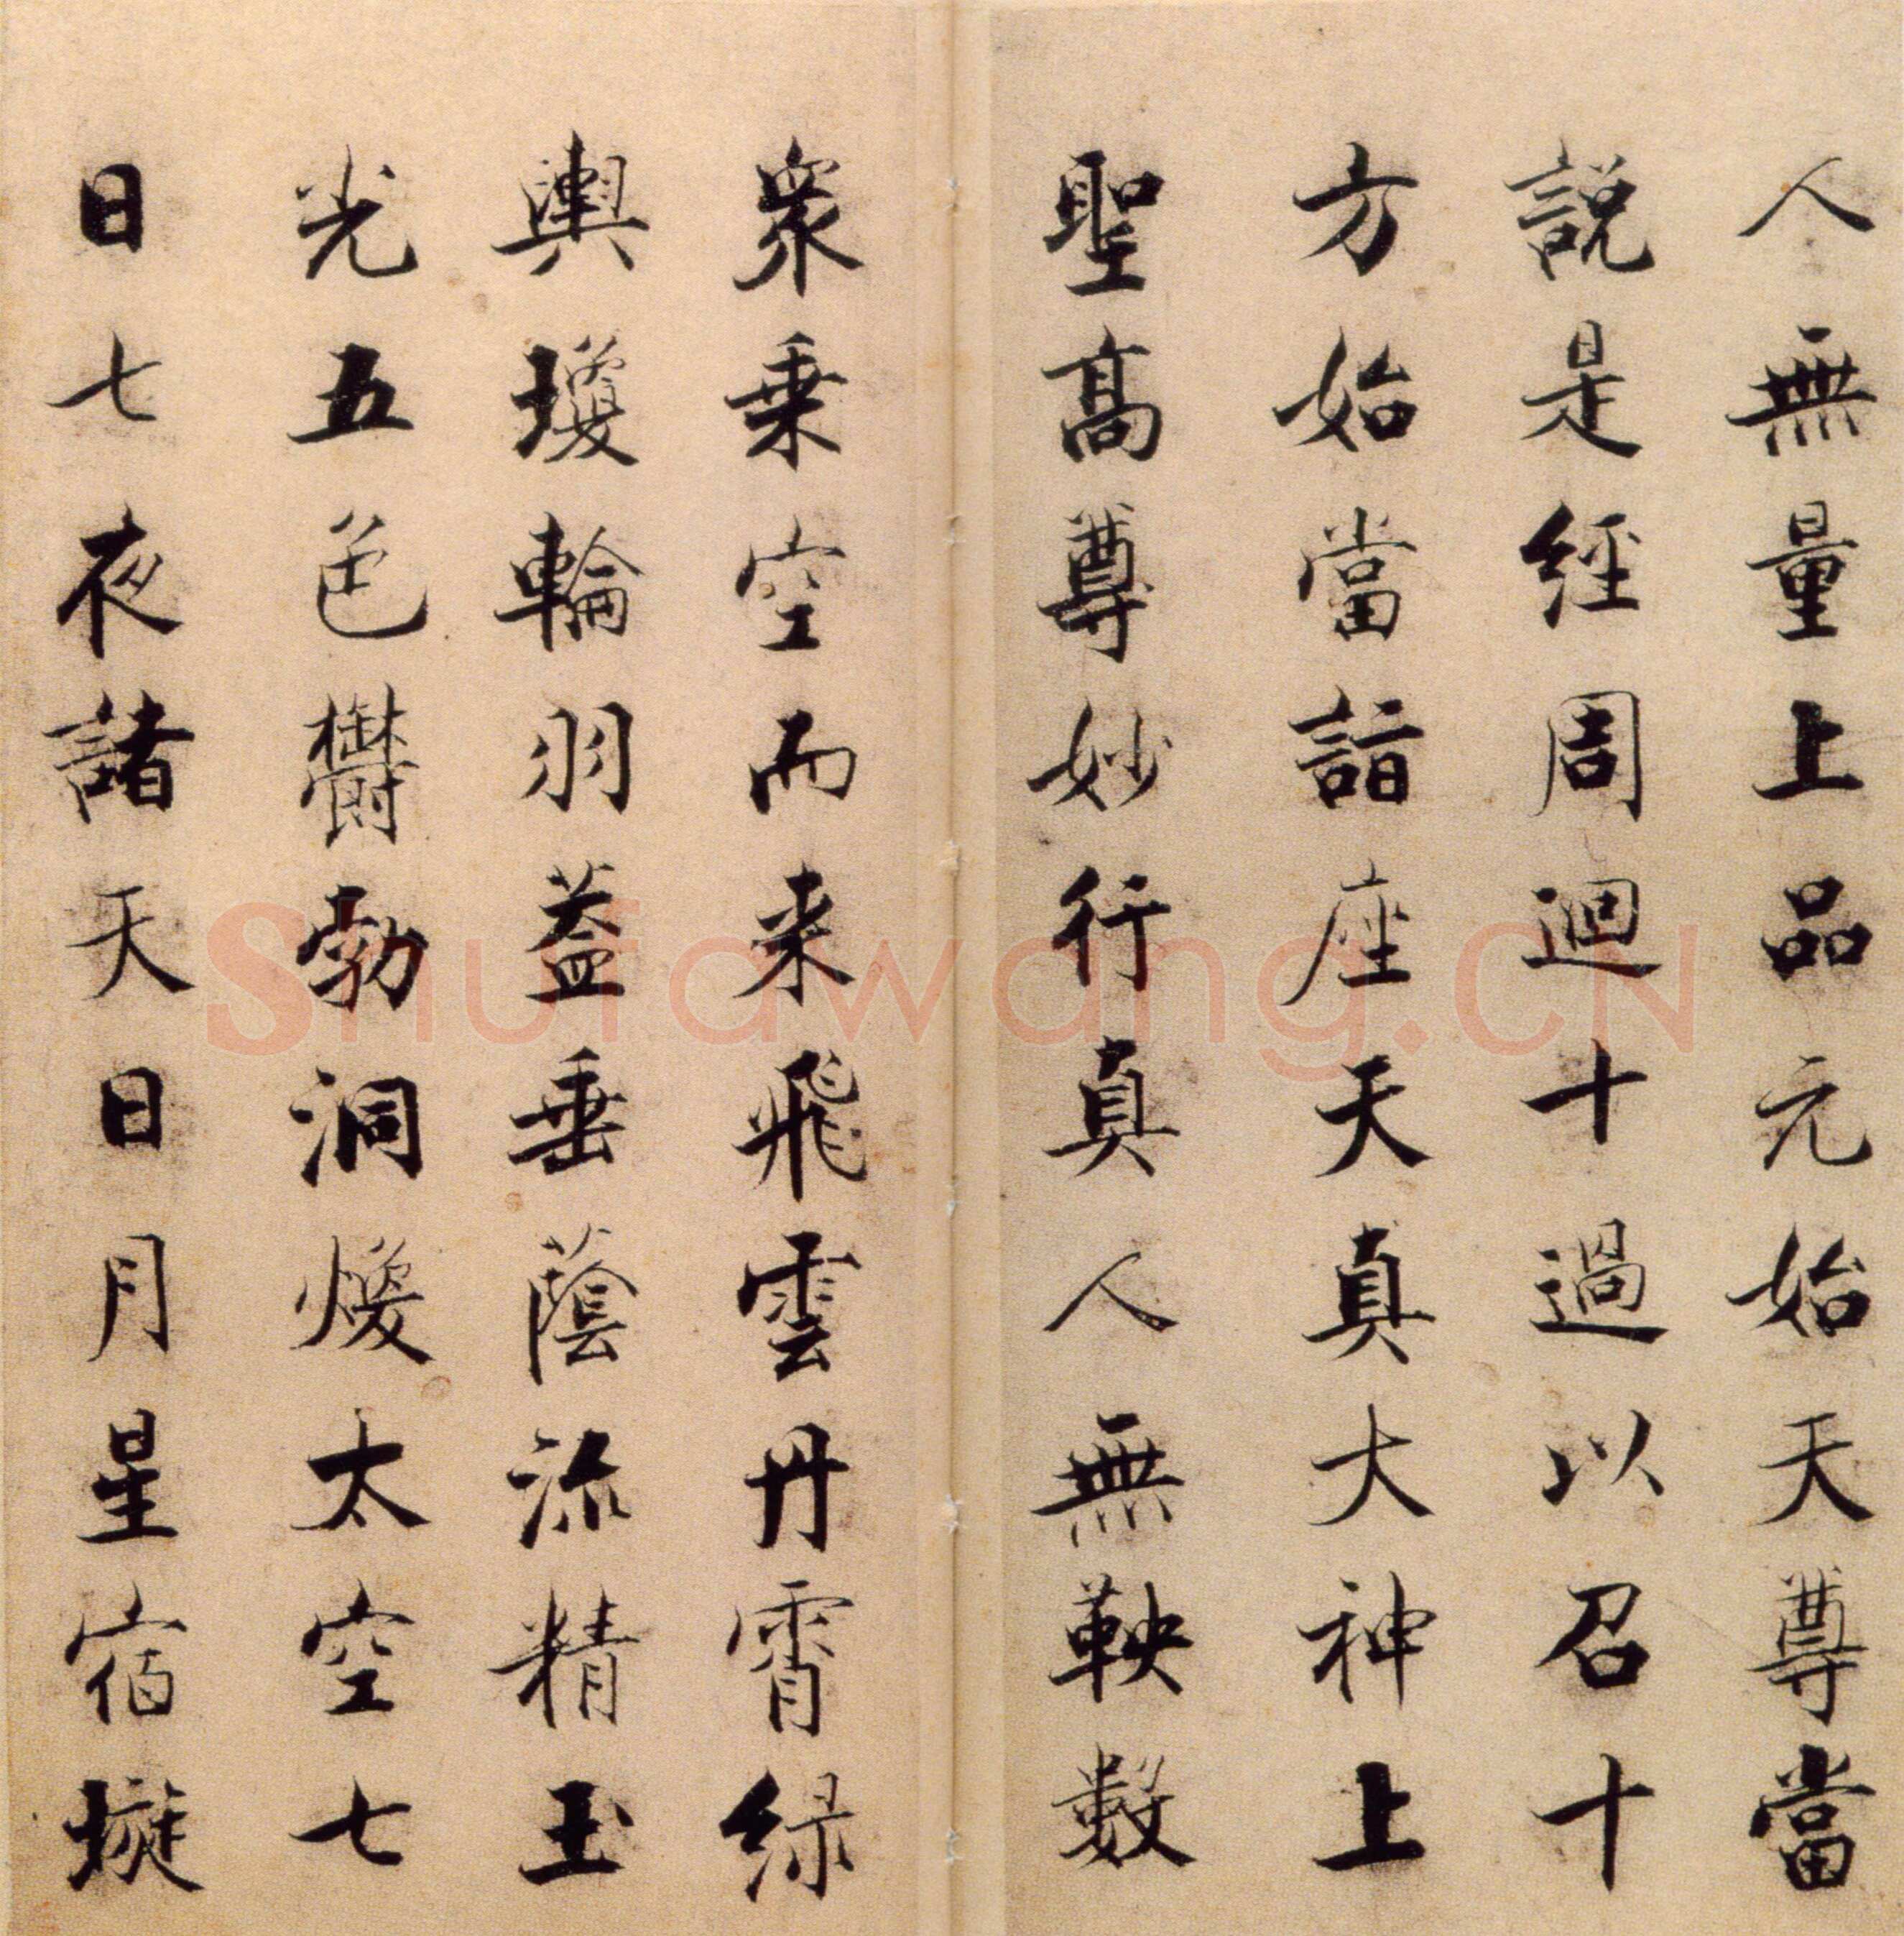 人無量上品元始天尊當
說是經周迴十過以召十
方始當詣座天真大神上
聖高尊妙行真人無鞅數
眾乗空而来飛雲丹霄緑
輿瓊輪羽葢垂蔭流精玉
光五色欝勃洞煥太空七
日七夜諸天日月星宿璇
Shufawang.CN